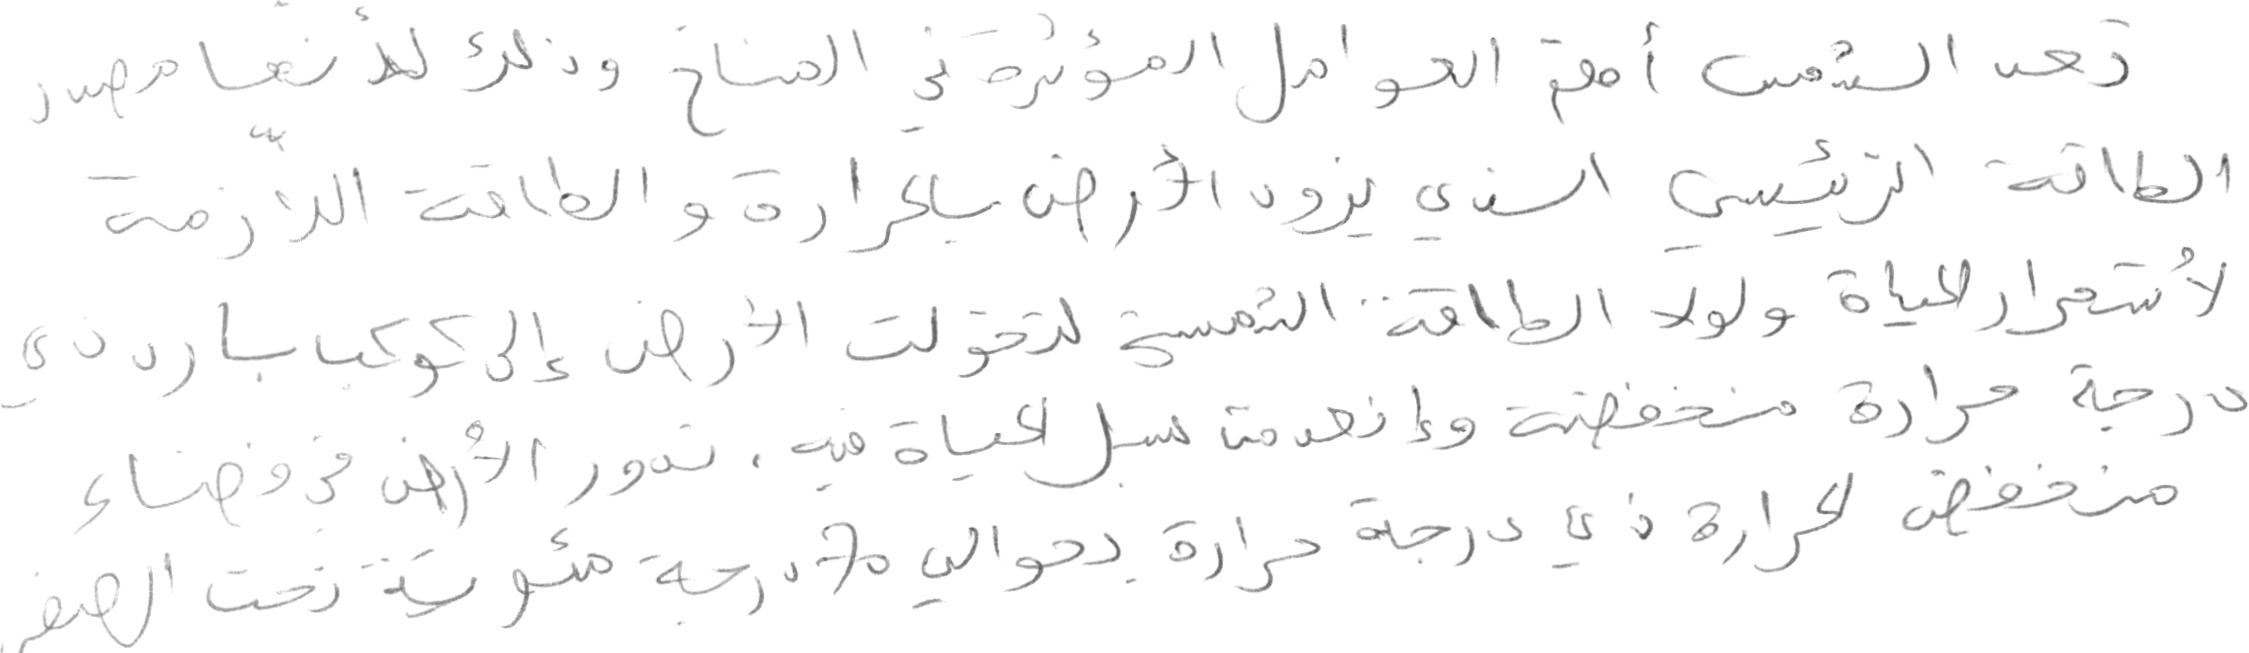 تعد الشمس أهم العوامل المؤثرة في المناخ وذلك لأنها مصدر
الطاقة الرئيسي الذي يزود الأرض بالحرارة والطاقة اللازمة
لاستمرار الحياة ولولا الطاقة الشمسية لتحولت الأرض إلى كوكب بارد ذي
درجة حرارة منخفضة وإنعدمت سبل الحياة فيه، تدور الأرض في فضاء
منخفض الحرارة ذي درجة حرارة بحوالي 70 درجة مئوية تحت الصفر